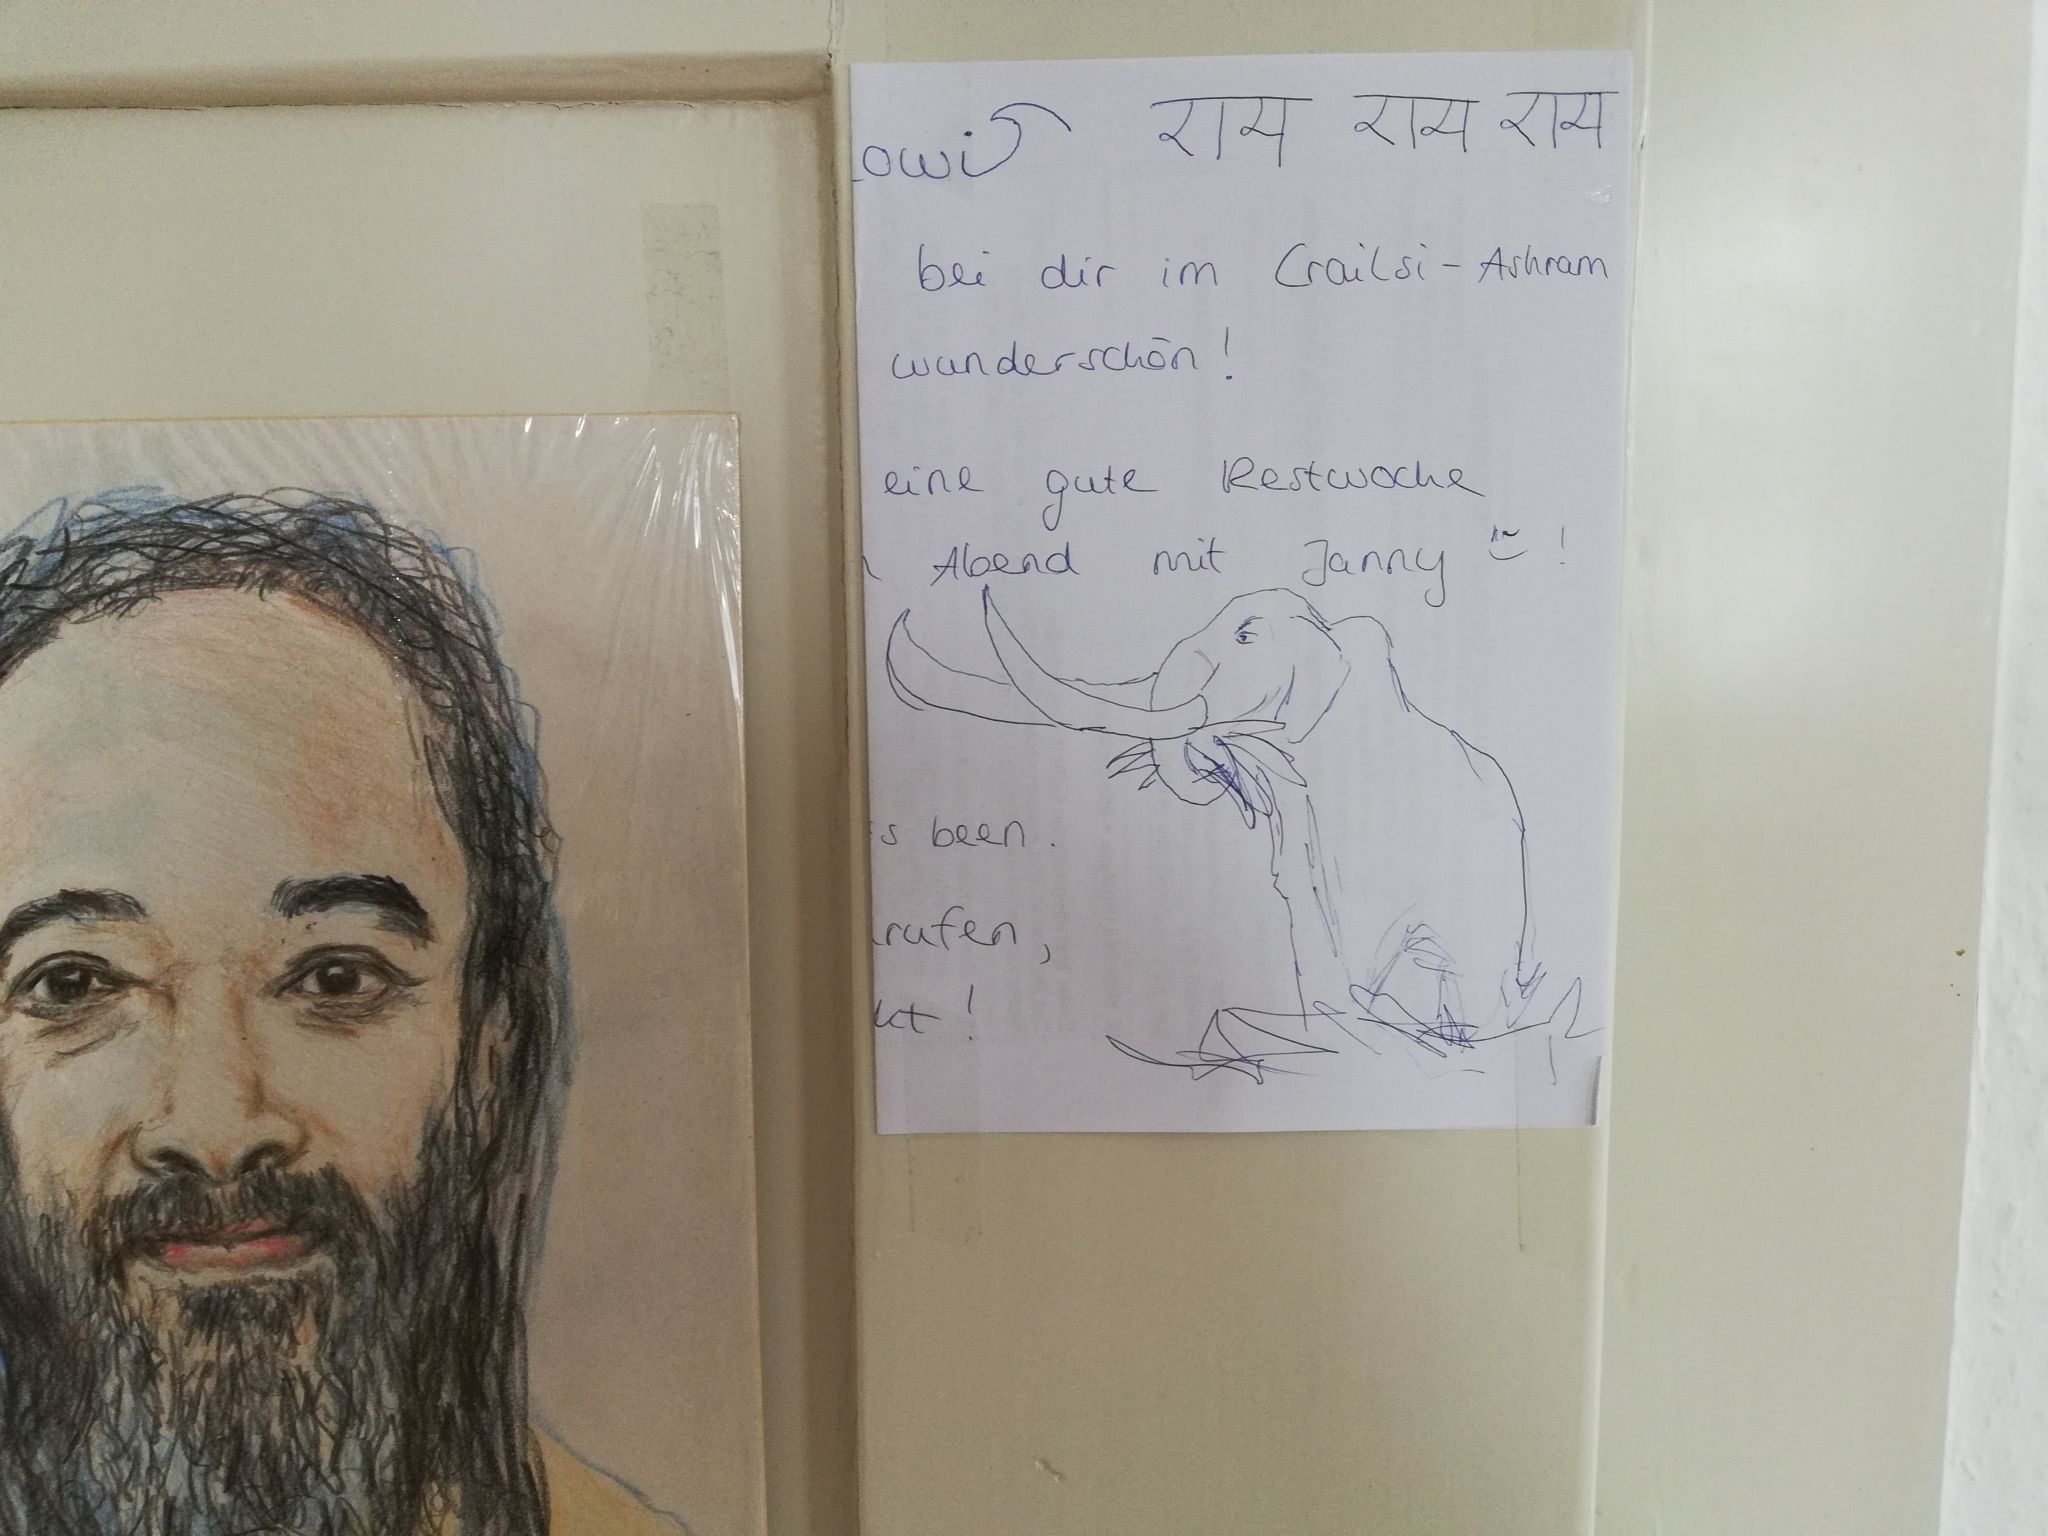 Lowi राम राम राम
bei dir im Crailsi-Ashram
wunderschön!
eine gute Restwoche
Abend mit Janny !
been.
rufen,
kt!